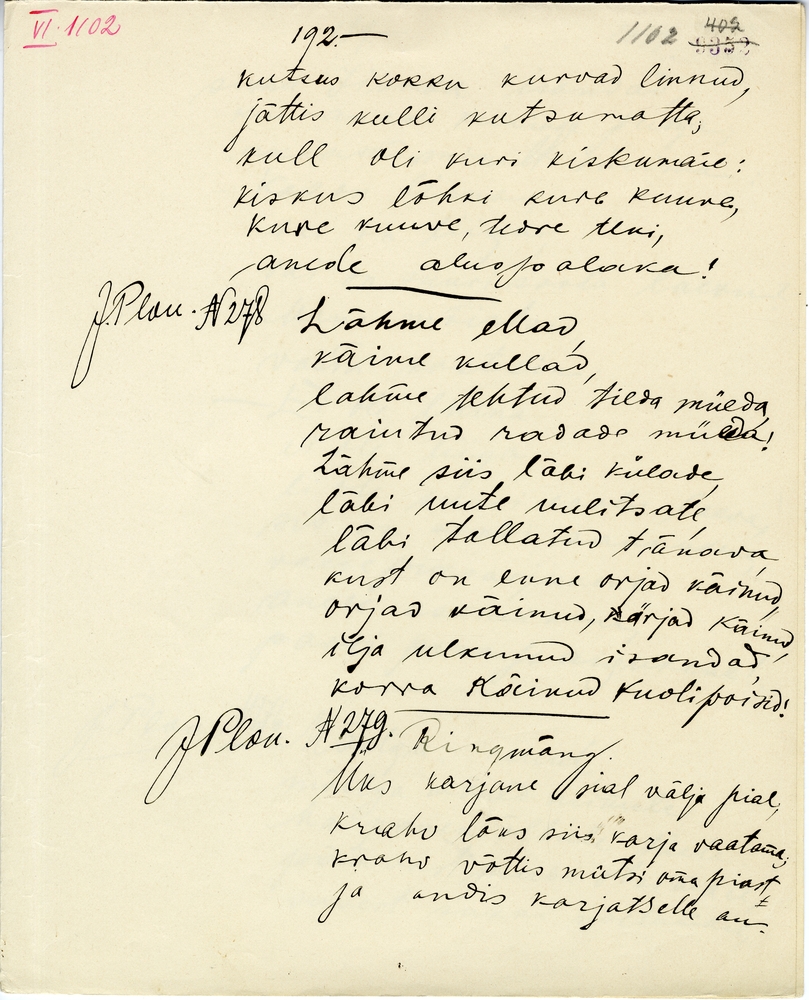 VI. 1102
192.—
1102
402
9352
kutsus kokku kurvad linnud,
jättis kulli kutsumatta;
kull oli kuri kiskumaie:
kiskus lõhki kure kuuve,
kure kuuve, tedre teki,
anede aluspalaka!
J. Plou. N 278
Lähme ellad,
käime kullad,
lähme tehtud tieda müeda,
raiutud radade müeda!
Lähme siis läbi külade,
läbi uute uulitsate,
läbi tallatud tränava,
kust on enne orjad käinud,
orjad käinud, härjad käinud,
ilja ulkunud isandad,
korra käinud kuolipoisid!
J Plou. N 279. Ringmäng.
Üks karjane sial välja pial,
krahv läks siis karja vaatama;
krahv võttis mütsi oma piast
ja andis karjatselle au.